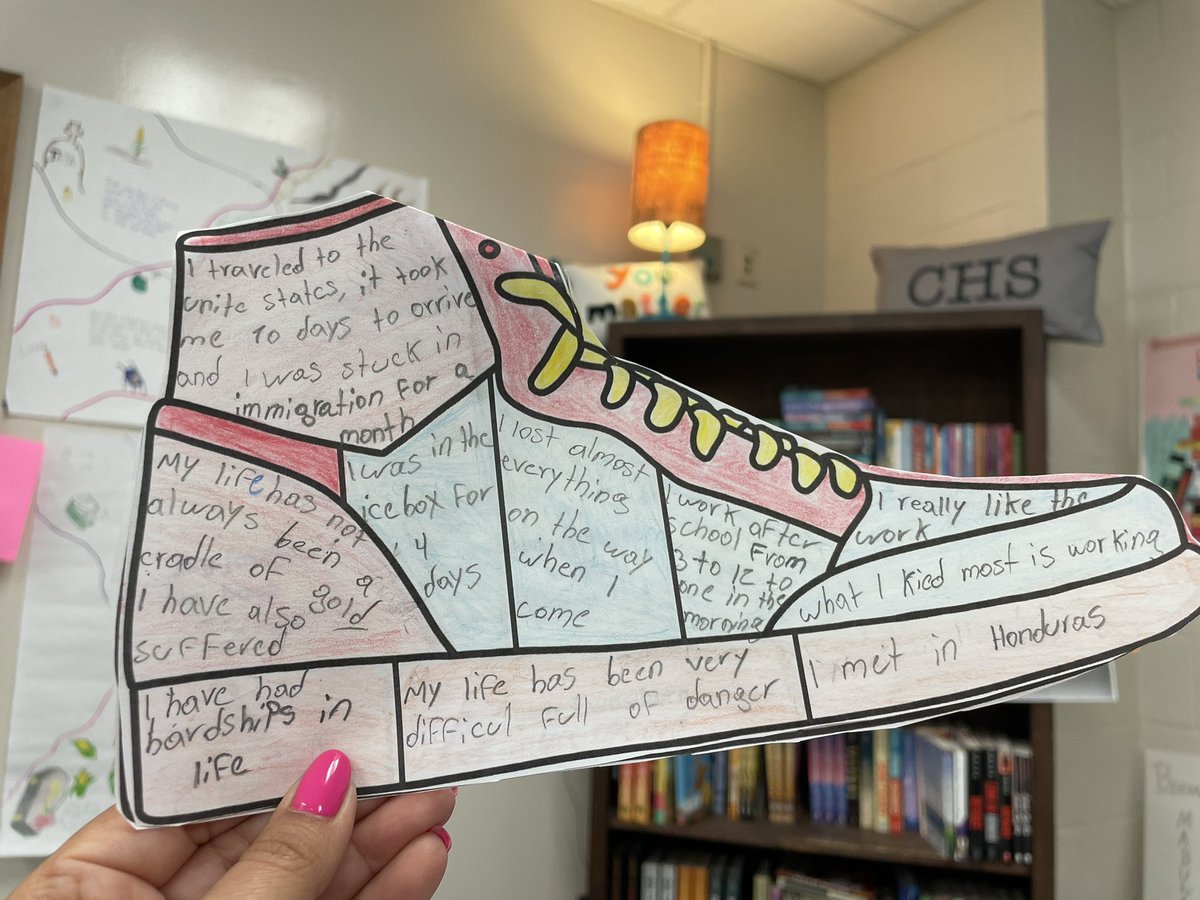 I traveled to the
unite states, it took
me 10 days to orrive
and I was stuck in
immigration for a
month
My life has not
always been a
cradle of gold
I have also
suffered
I was in the
icebox for
14
days
I lost almost
everything
on the way
when I
come
I work after
school from
3 to 12 to
one in the
morning
I really like the
work
what I kied most is working
I have had
hardships in
life
My life has been very
difficul full of danger
I met in Honduras
CHS
you